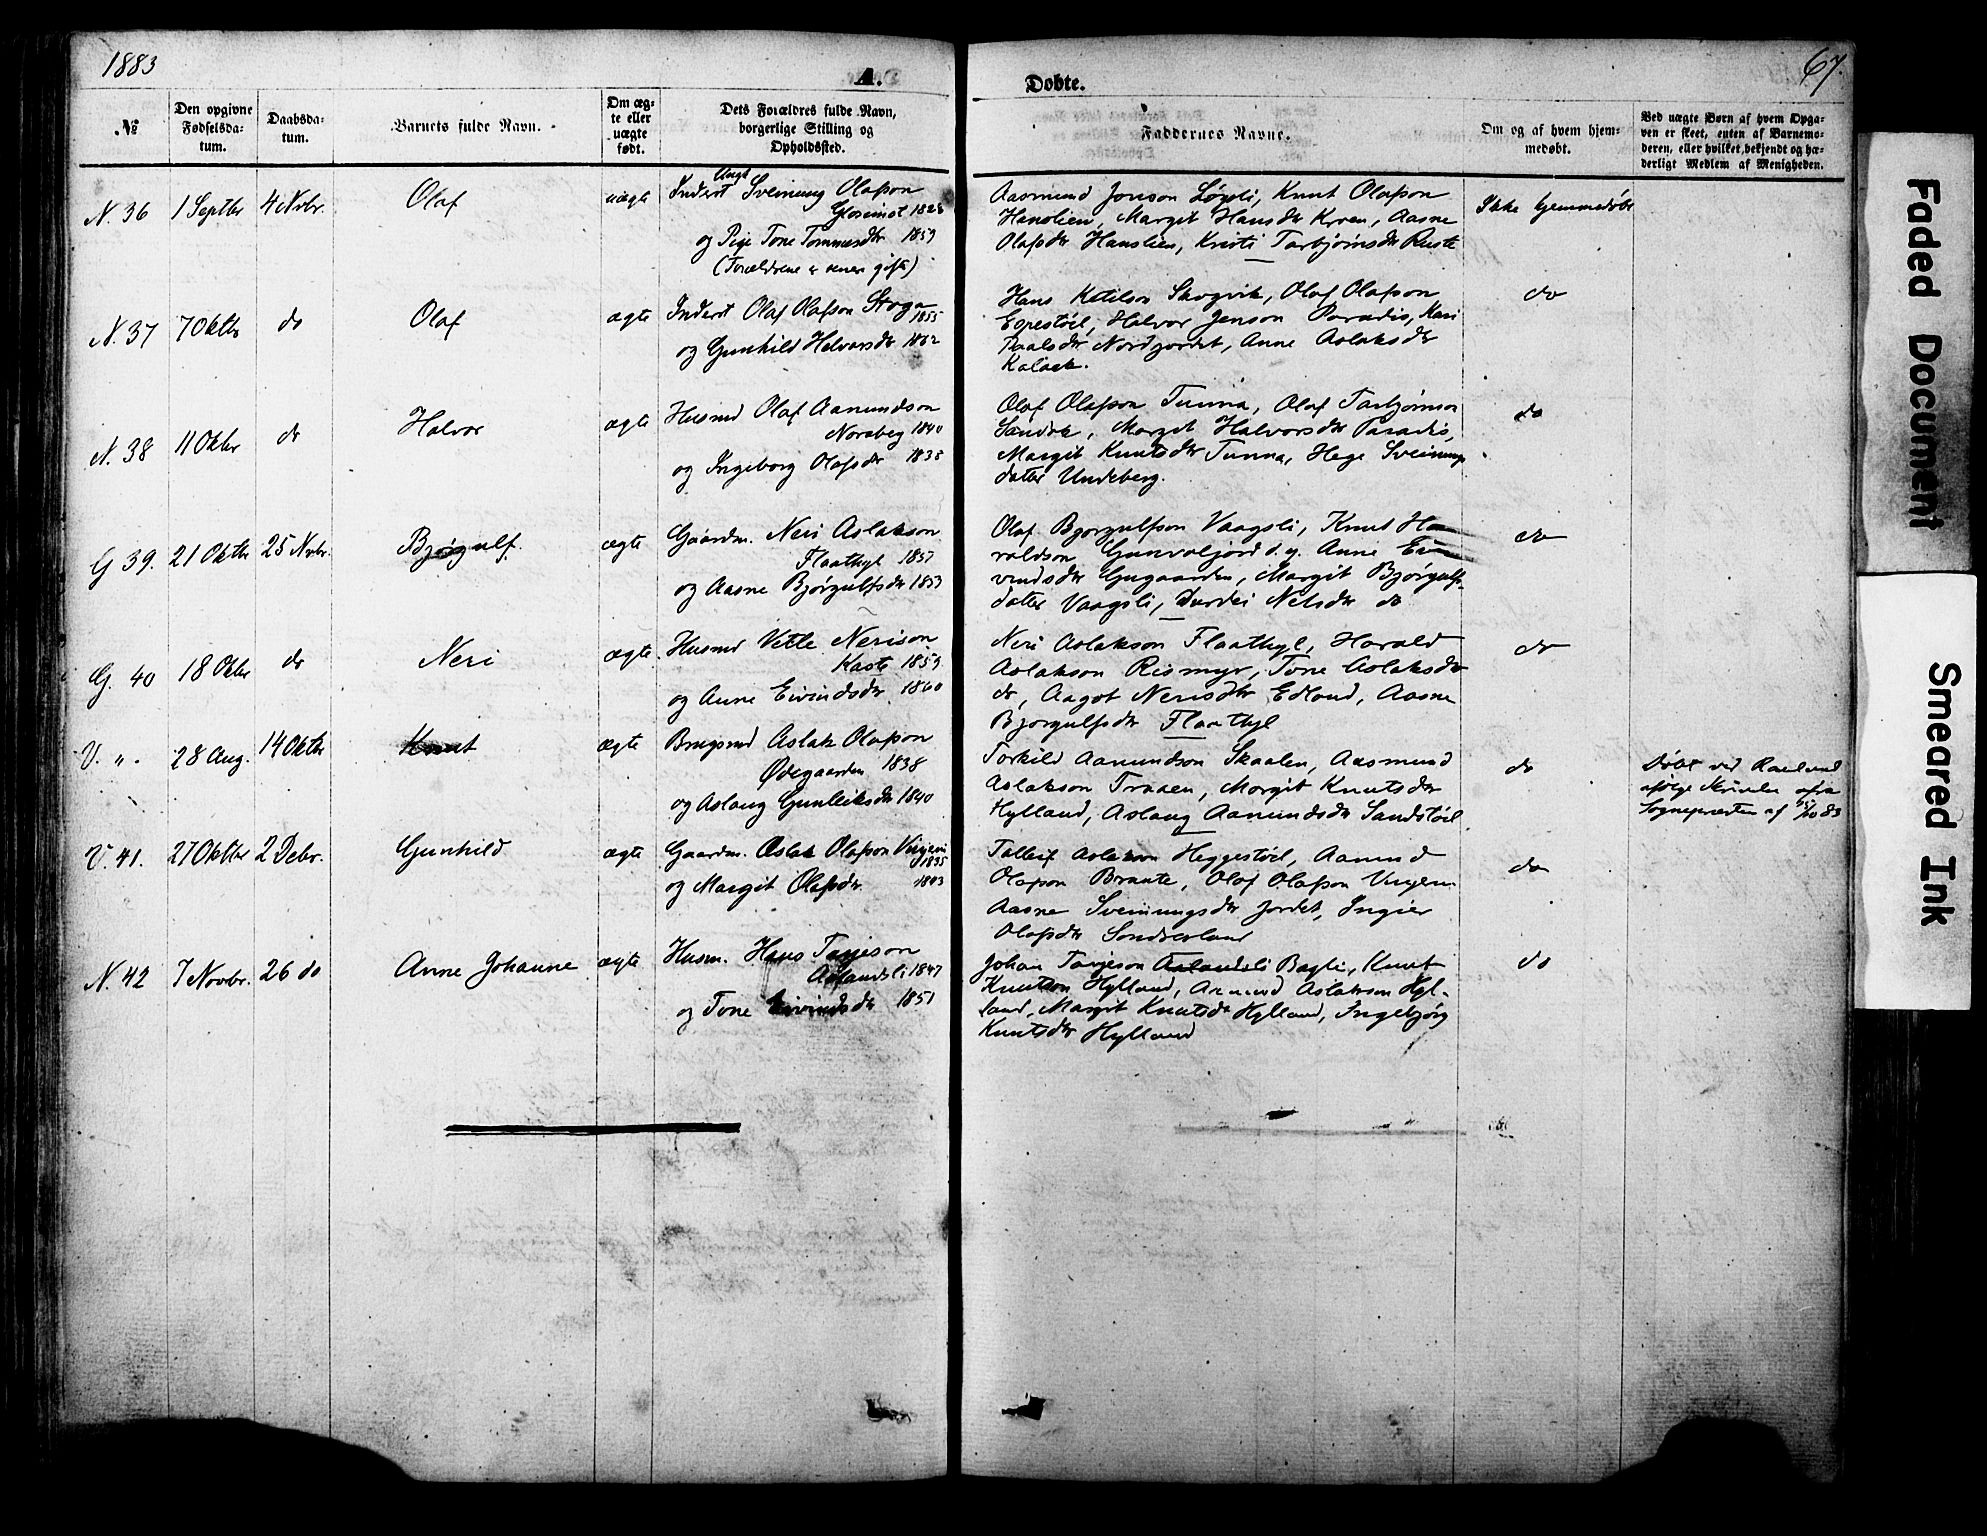 1883
67.
A.
Døbte.
№
Den opgivne Fødselsdatum.
Daabsdatum.
Barnets fulde Navn.
Om ægte eller uægte født.
Dets Forældres fulde Navn, borgerlige Stilling og Opholdssted.
Faddernes Navne.
Om og af hvem hjemmedøbt.
Ved uægte Børn af hvem Opgaven er skeet, enten af Barnemoderen, eller hvilket bekjendt og hæderligt Medlem af Menigheden.
N. 36 1 Septbr 4 Nvbr. Olaf uægte Inderst Ungk Sveinung Olafson
1828
og Pige Tone Tommesdtr 1859
(Forældrene er senere gifte)
Aasmund Jonson Løgsli, Knut Olafson
Hanslien, Margit Hansdtr Kyren, Aasne
Olafsdtr Hanslien, Kristi Torbjørnsdtr Ruste
Ikke hjemmedøbt
N. 37 7 Oktbr do Olaf ægte Inderst Olaf Olafson Stoga
1855
og Gunhild Halvorsdtr 1862
Hans Ketilson Skogvik, Olaf Olafson
Egrestøil, Halvor Jenson Paradis, Kari
Paalsdtr Nordjordet, Anne Aslaksdtr
do
N. 38 11 Oktbr do Halvor ægte Husmd Olaf Aanundson
Norsbeg 1840
og Ingeborg Olafsdtr 1838
Olaf Olafson Tunna, Olaf Torbjørnson
Sandok, Margit Halvorsdtr Paradis,
Margit Knutsdtr Tunna, Hege Sveinungs
datter Undeberg.
do
G 39. 21 Oktbr 25 Nvbr. Bjørgulf. ægte Gaardm. Neri Aslakson
Flaathyl 1857
og Aasne Bjørgulfsdtr 1853
Olaf Bjorgulfson Vaagsli, Knut Ha
raldson Gunvaljord d. y. Anne Ei
vindsdtr Gugaarden, Margit Bjørgulfs-
datter Vaagsli, Durdei Nelsdtr do
do
G. 40 18 Oktbr do Neri ægte Husmd Vetle Nerison
Kaste 1853
og Anne Eivindsdtr 1860
Neri Aslakson Flaathyl, Harald
Aslakson Rismyr, Tone Aslaksdtr
do, Aagot Nerisdtr Edland, Aasne
Bjørgulfsdtr Flaathyl
do
V. „. 28 Aug. 14 Oktbr Knut ægte Brugsmd Aslak Olafson
Ødegaarden 1838
og Aslaug Gunleiksdtr 1840
Torkild Aanundson Skaalen, Aasmund
Aslakson Traaen, Margit Knutsdtr
Hylland, Aslaug Aanundsdtr Sandstøil
do
Døbt ved Rauland
ifølge Skrivelse afra
Sognepresten af 15/10 83
V. 41. 27 Oktbr 2 Debr. Gunhild ægte Gaardm. Aslak Olafson Vinjeni
1835
og Margit Olafsdtr. 1843
Talleif Aslakson Heggestøil, Aanund
Olafson Braate, Olaf Olafson Vinjeni
Aasne Sveinungsdtr Jordet, Ingier
Olafsdtr Sønderland
do
N. 42 7 Novbr. 26 do Anne Johanne ægte Husm. Hans Tarjeson
Aslandsli 1847
og Tone Eivindsdtr 1851
Johan Tarjeson Aslandsli Bagli, Knut
Knutson Hylland, Aanund Aslakson Hyl-
land, Margit Knutsdtr Hylland, Ingebjørg
Knutsdtr Hylland
do
Faded Document
Smeared Ink